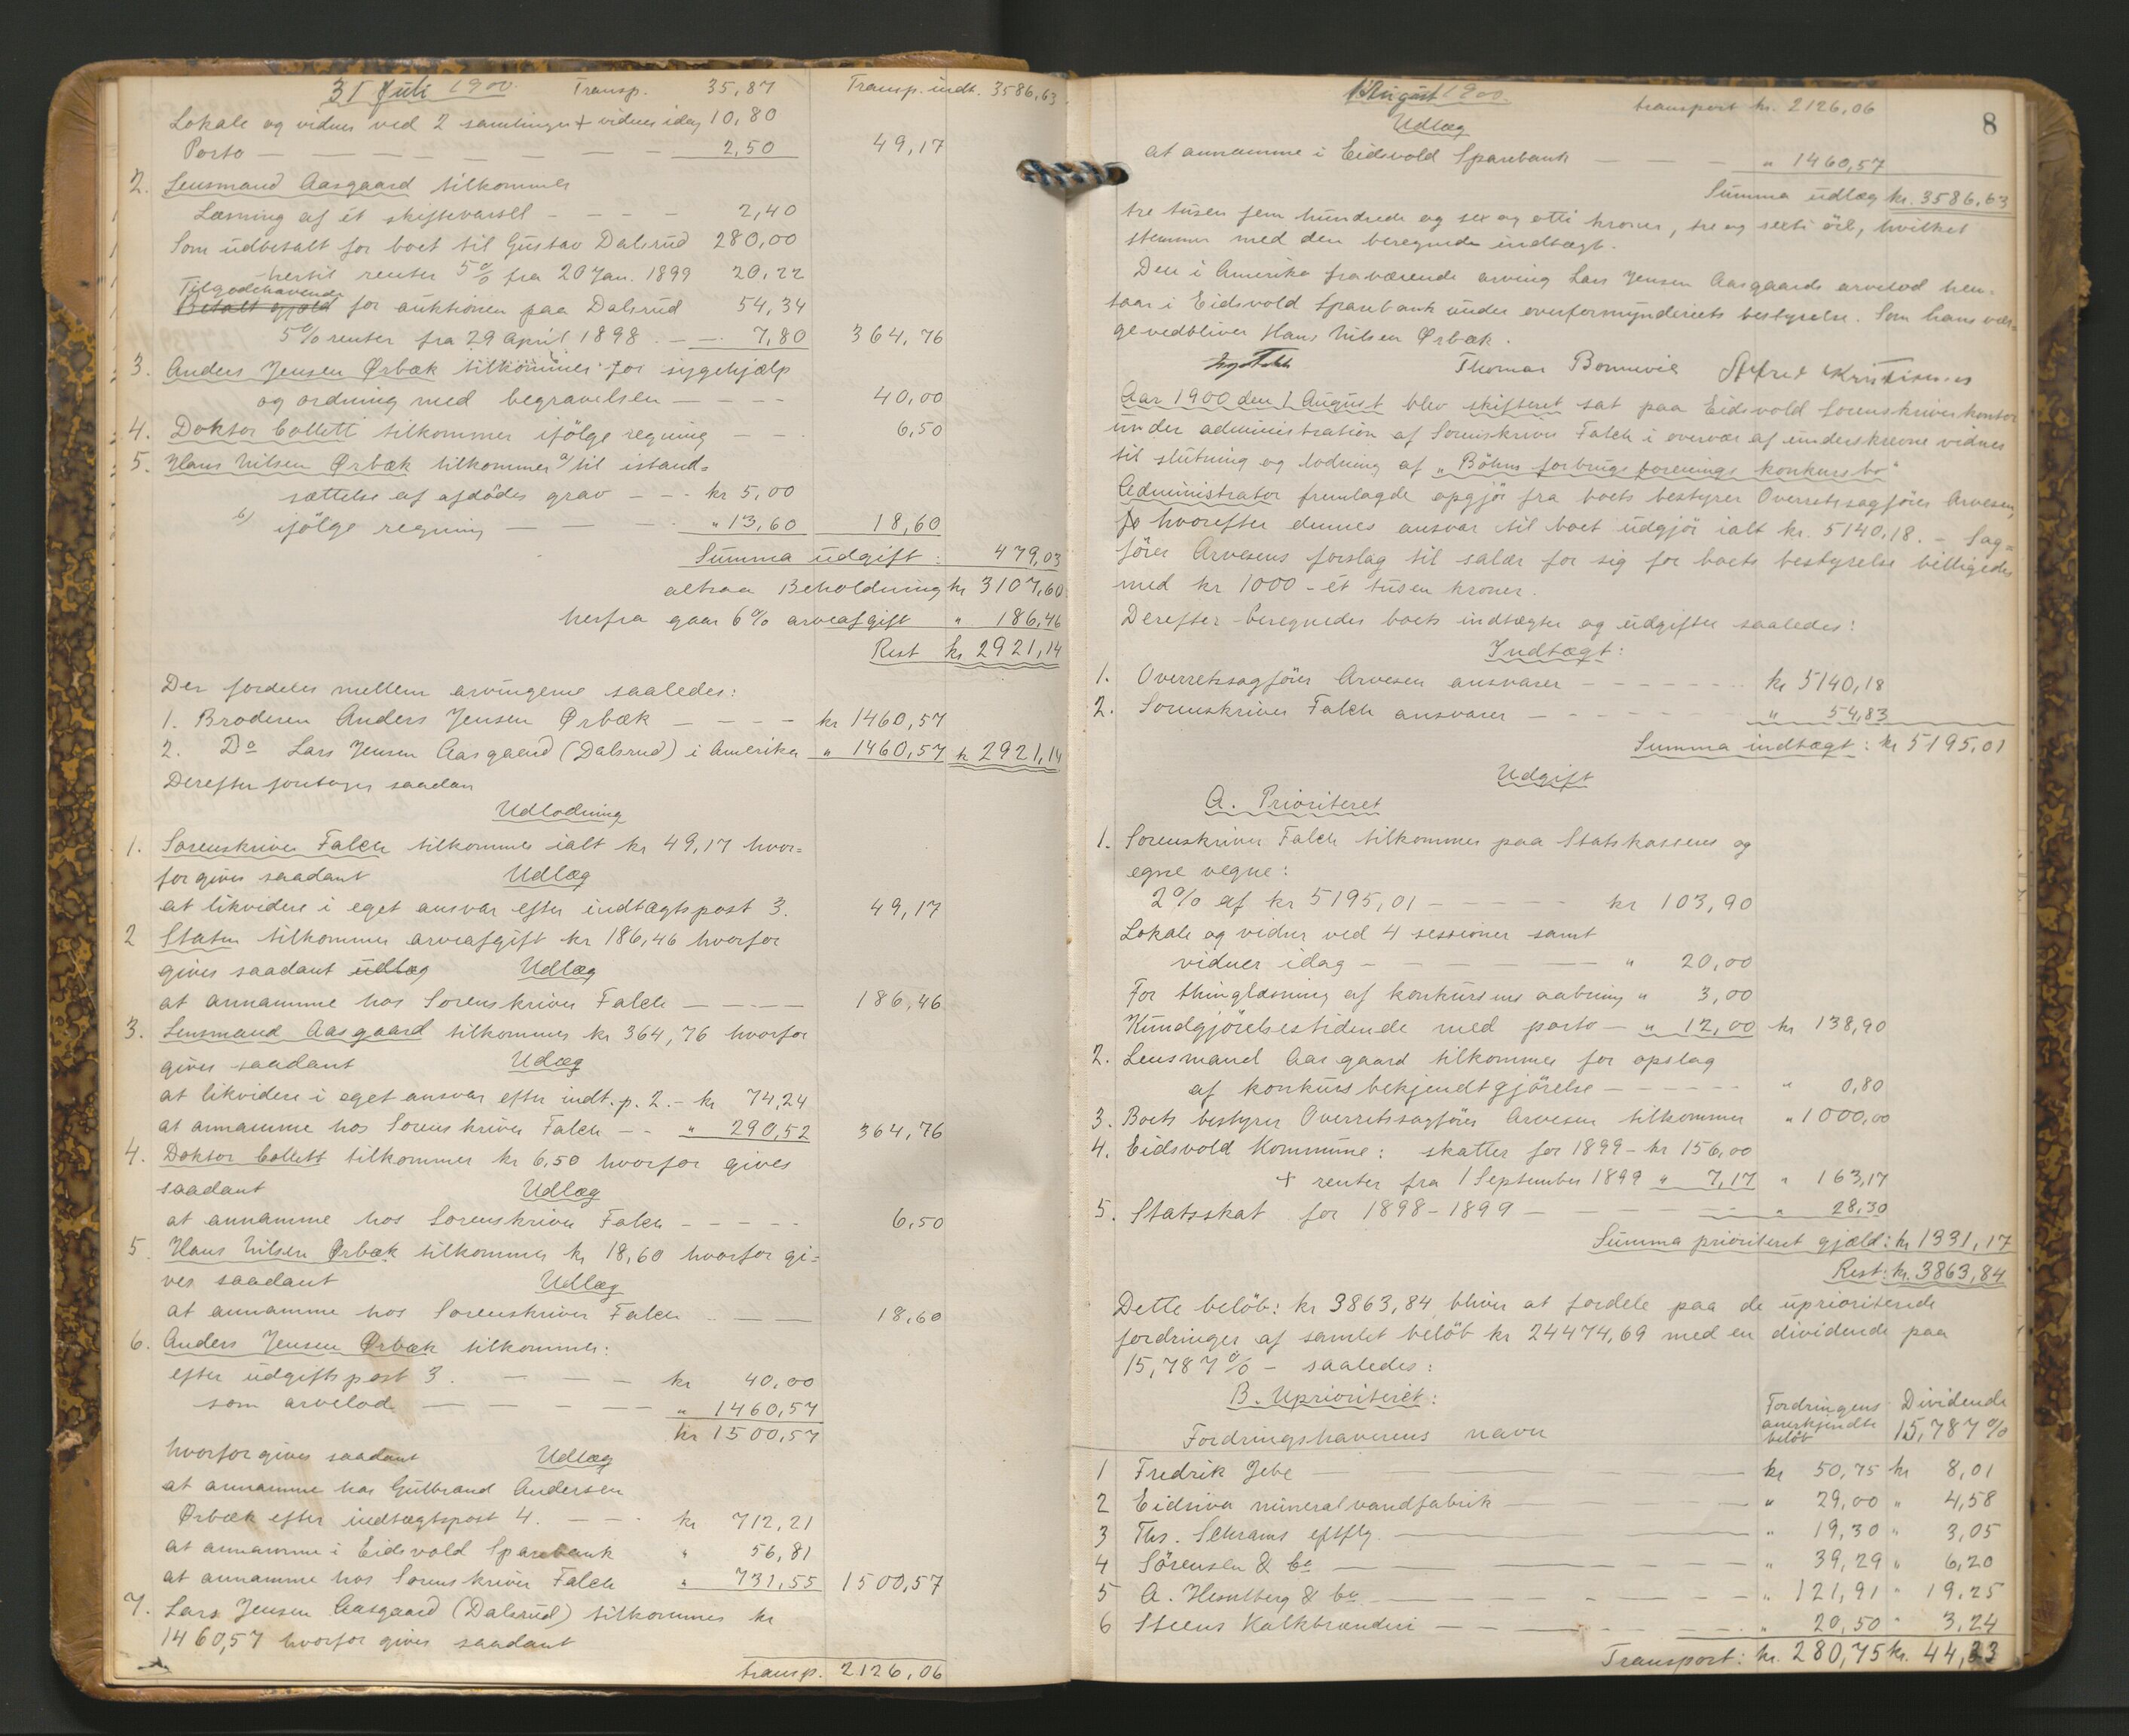 31 Juli 1900. Transp. 35,87 Transp. indt. 3586,63
Lokale og vidner ved 2 samlinger + vidner idag 10,80
Porto — — — — — — — 2,50 49,17
2. Lensmand Aasgaard tilkommer
Læsning af ét skiftevarsel - - - - 2,40
Som udbetalt for boet til Gustav Dalsrud 280,00
hertil renter 5% fra 20 Jan. 1899 20,22
Tilgodehavende
Betalt gjæld for auktionen paa Dalsrud 54,34
5% renter fra 29 April 1898 - - - 7,80 364,76
3. Anders Jensen Ørbæk tilkommer for sygehjælp
og ordning med begravelsen - - - - 40,00
4. Doktor Collett tilkommer ifölge regning - - 6,50
5. Hans Nilsen Ørbæk tilkommer a/ til istand=
sættelse af afdödes grav - - - kr 5,00
b/ ifölge regning - - - " 13,60 18,60
Summa udgift : 479,03
altsaa Beholdning kr 3107,60
herfra gaar 6% arveafgift " 186,46
Rest kr 2921,14
Der fordeles mellem arvingerne saaledes:
1. Broderen Anders Jensen Ørbæk - - - - kr 1460,57
2. Do Lars Jensen Aasgaard (Dalsrud) i Amerika " 1460,57 kr 2921,14
Derefter foretoges saadan
Udlodning
1. Sorenskriver Falch tilkommer ialt kr 49,17 hvor=
for gives saadant Udlæg
at likvidere i eget ansvar efter indtægtspost 3. 49,17
2 Staten tilkommer arveafgift kr 186,46 hvorfor
gives saadant udlæg Udlæg
at annamme hos Sorenskriver Falch - - - - 186,46
3. Lensmand Aasgaard tilkommer kr 364,76 hvorfor
gives saadant Udlæg
at likvidere i eget ansvar efter indt. p. 2. - kr 74,24
at annamme hos Sorenskriver Falch - - " 290,52 364,76
4. Doktor Collett tilkommer kr 6,50 hvorfor gives
saadant Udlæg
at annamme hos Sorenskriver Falch - - - - - 6,50
5 Hans Nilsen Ørbæk tilkommer kr 18,60 hvorfor gi=
ves saadant Udlæg
at annamme hos Sorenskriver Falch - - - 18,60
6. Anders Jensen Ørbæk tilkommer:
efter udgiftspost 3. - - - - kr 40,00
som arvelod — — — — — " 1460,57
kr 1500,57
hvorfor gives saadant Udlæg
at annamme hos Gulbrand Andersen
Ørbæk efter indtægtspost 4. - - - kr 712,21
at annamme i Eidsvold Sparebank " 56,81
at annamme hos Sorenskriver Falch " 731,55 1500,57
7. Lars Jensen Aasgaard (Dalsrud) tilkommer kr
1460,57 hvorfor gives saadant
transp. 2126,06
1 August 1900. transport kr. 2126,06 8
Udlæg
at annamme i Eidsvold Sparebank — — — " 1460,57
Summa udlæg kr. 3586,63
tre tusen fem hundrede og sex og otti kroner, tre og sexti öre, hvilket
stemmer med den beregnede indtægt.
Den i Amerika fraværende arving Lars Jensen Aasgaards arvelod hen=
staar i Eidsvold Sparebank under overformynderiets bestyrelse. Som hans vær=
ge vedbliver Hans Nilsen Ørbæk.
Thomas Bonnevie Alfred Kristiansen
Aar 1900 den 1 August blev skifteret sat paa Eidsvold Sorenskriverkontor
under administration af Sorenskriver Falch i overvær af underskrevne vidner
til slutning og lodning af "Böhns forbrugsforenings konkursbo"
Administrator fremlagde opgjör fra boets bestyrer Overretssagförer Arvesen,
hvorefter dennes ansvar til boet udgjör ialt kr. 5140,18. - Sag=
förer Arvesens forslag til salær for sig for boets bestyrelse billigedes
med kr 1000 - ét tusen kroner.
Derefter beregnedes boets indtægter og udgifter saaledes:
Indtægt:
1. Overretssagförer Arvesen ansvarer - - - - - - - kr 5140,18
2. Sorenskriver Falch ansvarer - - - - - - - " 54,83
Summa indtægt: kr 5195,01
Udgift
A. Prioriteret
1. Sorenskriver Falch tilkommer paa Statskassens og
egne vegne:
2% af kr 5195,01 - - - - - - kr 103,90
Lokale og vidner ved 4 sessioner samt
vidner idag - - - - - - - " 20,00
For thinglæsning af konkursens aabning " 3,00
Kundgjörelsestidende med porto - " 12,00 kr 138,90
2. Lensmand Aasgaard tilkommer for opslag
af konkursbekjendtgjörelse - - - - - - " 0,80
3. Boets bestyrer Overretssagförer Arvesen tilkommer " 1000,00
4. Eidsvold Kommune: skatter for 1899 - kr 156,00
+ renter fra 1 September 1899 " 7,17 " 163,17
5. Statsskat for 1898-1899 - - - - - - " 28,30
Summa prioriteret gjæld: kr 1331,17
Rest: kr. 3863,84
Dette belöb: kr 3863,84 bliver at fordele paa de uprioriterede
fordringer af samlet belöb kr 24474,69 med en dividende paa
15,787% - saaledes:
B. Uprioriteret:
Fordringshaverens navn Fordringens anerkjendte belöb Dividende 15,787%
1 Fredrik Jebe — — — kr 50,75 kr 8,01
2 Eidsiva mineralvandfabrik — — " 29,00 " 4,58
3 Ths. Schrams eftflg. — — — " 19,30 " 3,05
4 Sörensen & Co — — — " 39,29 " 6,20
5 A. & Co. — — — " 121,91 " 19,25
6 Steens Kalkbrænderi — — — " 20,50 " 3,24
Transport: kr. 280,75 kr. 44,33